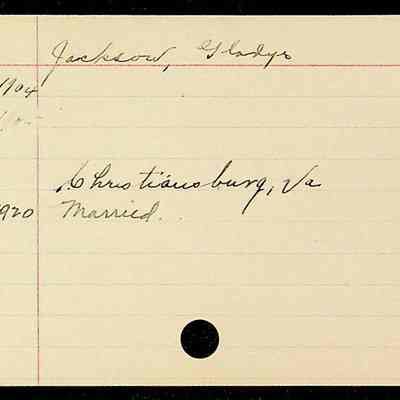 Jackson, Gladys
1904
Christiansburg, Va
1920 Married.